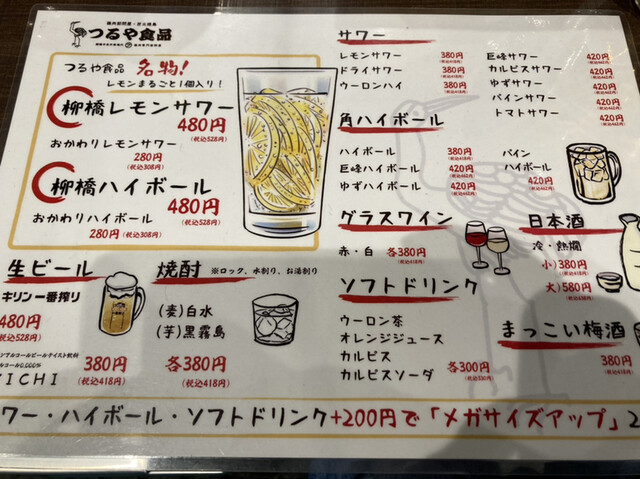 つるや食品
つるや食品 名物!
レモンまるごと1個入り!
柳橋レモンサワー
480円
(税込528円)
おかわりレモンサワー
280円
(税込308円)
柳橋ハイボール
480円
(税込528円)
おかわりハイボール
280円
(税込308円)
生ビール
キリン一番搾り
480円
(税込528円)
380円
(税込418円)
ICHI
焼酎 ※ロック、水割り、お湯割り
(麦)白水
(芋)黒霧島
各380円
(税込418円)
サワー
レモンサワー 380円
(税込418円)
ドライサワー 380円
(税込418円)
ウーロンハイ 380円
(税込418円)
巨峰サワー 420円
(税込462円)
カルピスサワー 420円
(税込462円)
ゆずサワー 420円
(税込462円)
パインサワー 420円
(税込462円)
トマトサワー 420円
(税込462円)
角ハイボール
ハイボール 380円
(税込418円)
巨峰ハイボール 420円
(税込462円)
ゆずハイボール 420円
(税込462円)
パイン
ハイボール 420円
(税込462円)
グラスワイン
赤・白 各380円
(税込418円)
日本酒
冷・熱燗
小)380円
(税込418円)
大)580円
(税込638円)
ソフトドリンク
ウーロン茶
オレンジジュース
カルピス
カルピスソーダ
各300円
(税込330円)
まっこい梅酒
380円
(税込418円)
ワー・ハイボール・ソフトドリンク+200円で「メガサイズアップ」2